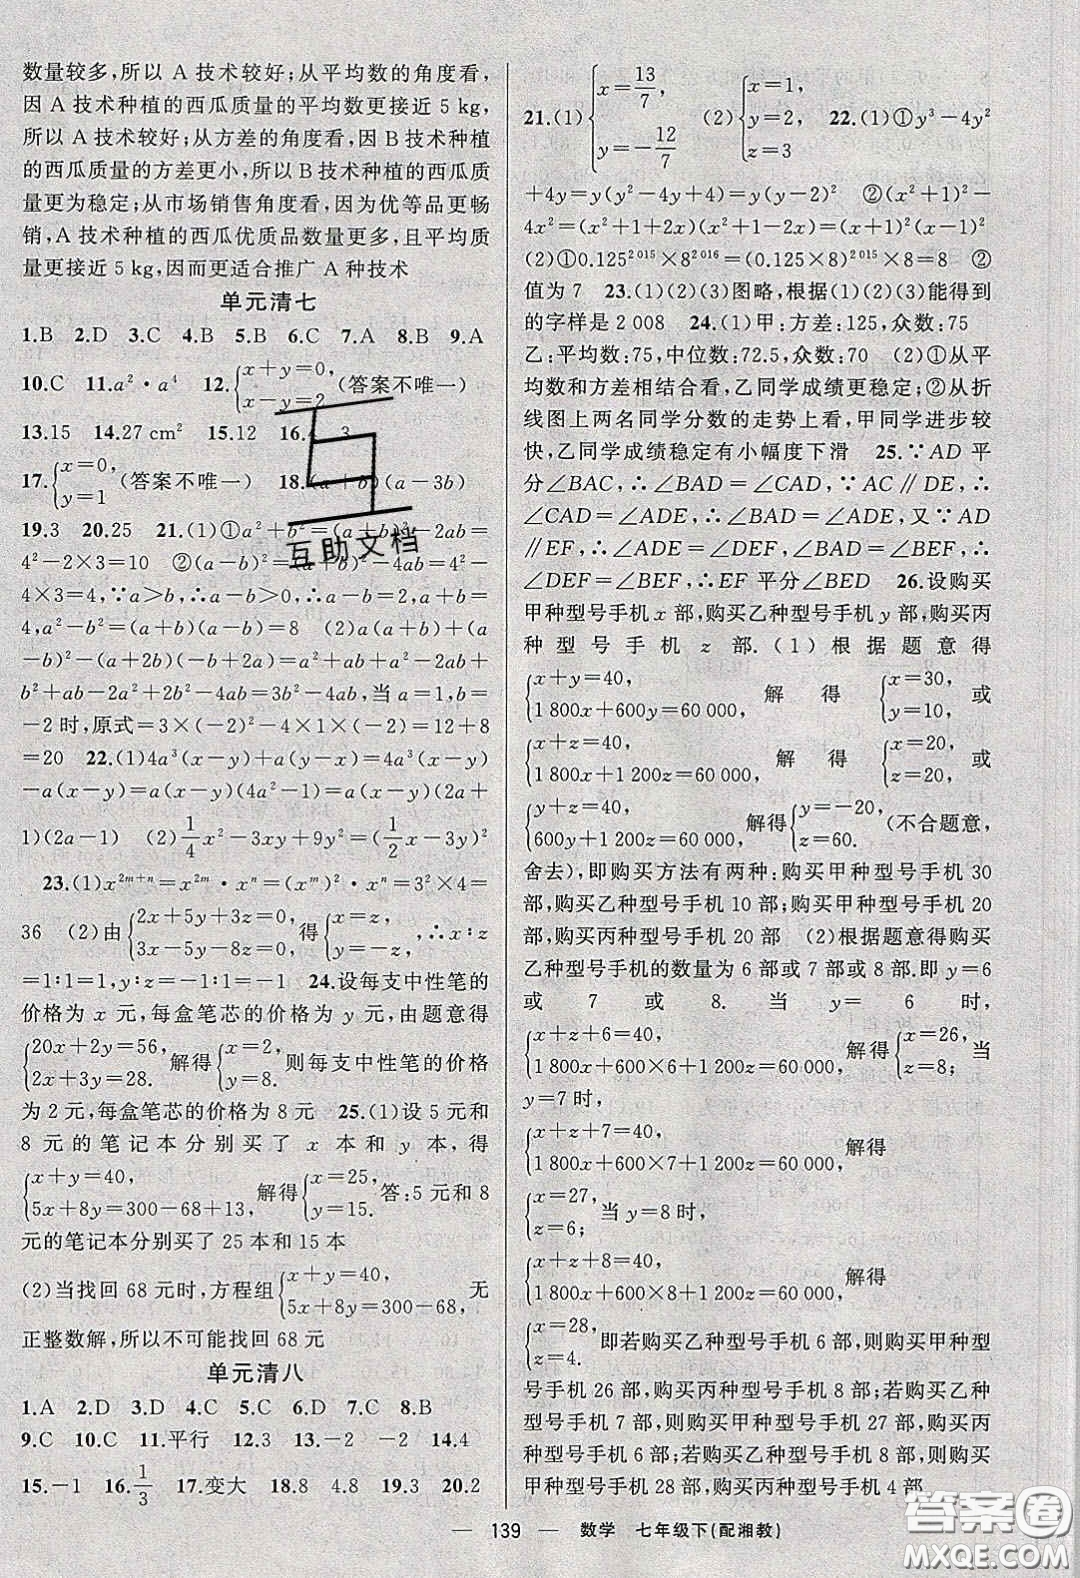 数量较多,所以 A 技术较好;从平均数的角度看,
因 A 技术种植的西瓜质量的平均数更接近 5 kg,
所以 A 技术较好;从方差的角度看,因 B 技术种植
的西瓜质量的方差更小,所以 B 技术种植的西瓜质
量更为稳定;从市场销售角度看,因为优等品更畅
销,A 技术种植的西瓜优质品数量更多,且平均质
量更接近 5 kg,因而更适合推广 A 种技术
单元清七
1.B 2.D 3.C 4.B 5.B 6.C 7.A 8.B 9.A
10.C 11.a²·a⁴ 12.{x+y=0, x-y=2 (答案不唯一)
13.15 14.27 cm² 15.12 16.4 3
17.{x=0, y=1 (答案不唯一) 18.(a+b)(a-3b)
19.3 20.25 21.(1)①a²+b²=(a+b)²-2ab=
4²-2×3=10 ②(a-b)²=(a+b)²-4ab=4²-
4×3=4,∵a>b,∴a-b>0,∴a-b=2,a+b=
4,a²-b²=(a+b)(a-b)=8 (2)a(a+b)+(a
-b)²-(a+2b)(-2b+2a)=a²+ab+a²-2ab+
b²+4ab-2a²+4b²-4ab=3b²-4ab,当 a=1,b=
-2 时,原式=3×(-2)²-4×1×(-2)=12+8
=20 22.(1)4a³(x-y)+a(y-x)=4a³(x-y)
-a(x-y)=a(x-y)(4a²-1)=a(x-y)(2a+
1)(2a-1) (2)1/4x²-3xy+9y²=(1/2x-3y)²
23.(1)x²ᵐ⁺ⁿ=x²ᵐ·xⁿ=(xᵐ)²·xⁿ=3²×4=
36 (2)由{2x+5y+3z=0, 3x-5y-8z=0 得{x=z, y=-z,∴x:z
=1:1=1,y:z=-1:1=-1 24.设每支中性笔的
价格为 x 元,每盒笔芯的价格为 y 元,由题意得
{20x+2y=56, 2x+3y=28. 解得{x=2, y=8. 则每支中性笔的价格
为 2 元,每盒笔芯的价格为 8 元 25.(1)设 5 元和
8 元的笔记本分别买了 x 本和 y 本,得
{x+y=40, 5x+8y=300-68+13, 解得{x=25, y=15. 答:5 元和 8
元的笔记本分别买了 25 本和 15 本
(2)当找回 68 元时,方程组{x+y=40, 5x+8y=300-68, 无
正整数解,所以不可能找回 68 元
单元清八
1.A 2.D 3.D 4.C 5.C 6.D 7.C 8.B
9.C 10.C 11.平行 12.3 13.-2 -2 14.4
15.-1 16.1/3 17.变大 18.8 4.8 19.3 20.2
21.(1){x=13/7, y=-12/7 (2){x=1, y=2, z=3 22.(1)①y³-4y²
+4y=y(y²-4y+4)=y(y-2)² ②(x²+1)²-
4x²=(x²+1+2x)(x²+1-2x)=(x+1)²(x-1)²
(2)①0.125²⁰¹⁵×8²⁰¹⁶=(0.125×8)²⁰¹⁵×8=8 ②
值为 7 23.(1)(2)(3)图略,根据(1)(2)(3)能得到
的字样是 2 008 24.(1)甲:方差:125,众数:75
乙:平均数:75,中位数:72.5,众数:70 (2)①从平
均数和方差相结合看,乙同学成绩更稳定;②从折
线图上两名同学分数的走势上看,甲同学进步较
快,乙同学成绩稳定有小幅度下滑 25.∵AD 平
分∠BAC,∴∠BAD=∠CAD.∵AC∥DE,∴
∠CAD=∠ADE,∴∠BAD=∠ADE,又∵AD
∥EF,∴∠ADE=∠DEF,∠BAD=∠BEF,∴
∠DEF=∠BEF,∴EF 平分∠BED 26.设购买
甲种型号手机 x 部,购买乙种型号手机 y 部,购买丙
种型号手机 z 部.(1)根据题意得
{x+y=40, 1 800x+600y=60 000, 解得 {x=30, y=10, 或
{x+z=40, 1 800x+1 200z=60 000, 解得 {x=20, z=20, 或
{y+z=40, 600y+1 200z=60 000, 解得{y=-20, z=60. (不合题意,
舍去),即购买方法有两种:购买甲种型号手机 30
部,购买乙种型号手机 10 部;购买甲种型号手机 20
部,购买丙种型号手机 20 部 (2)根据题意得购买
乙种型号手机的数量为 6 部或 7 部或 8 部.即 y=6
或 7 或 8. 当 y=6 时,
{x+z+6=40, 1 800x+600×6+1 200z=60 000, 解得{x=26, z=8; 当
y=7 时,
{x+z+7=40, 1 800x+600×7+1 200z=60 000, 解得
{x=27, z=6; 当 y=8 时,
{x+z+8=40, 1 800x+600×8+1 200z=60 000, 解得
{x=28, z=4. 即若购买乙种型号手机 6 部,则购买甲种型
号手机 26 部,购买丙种型号手机 8 部;若购买乙种
型号手机 7 部,则购买甲种型号手机 27 部,购买丙
种型号手机 6 部;若购买乙种型号手机 8 部,则购买
甲种型号手机 28 部,购买丙种型号手机 4 部
— 139 — 数学 七年级下(配湘教)
互助文档
答案圈
MXQE.COM